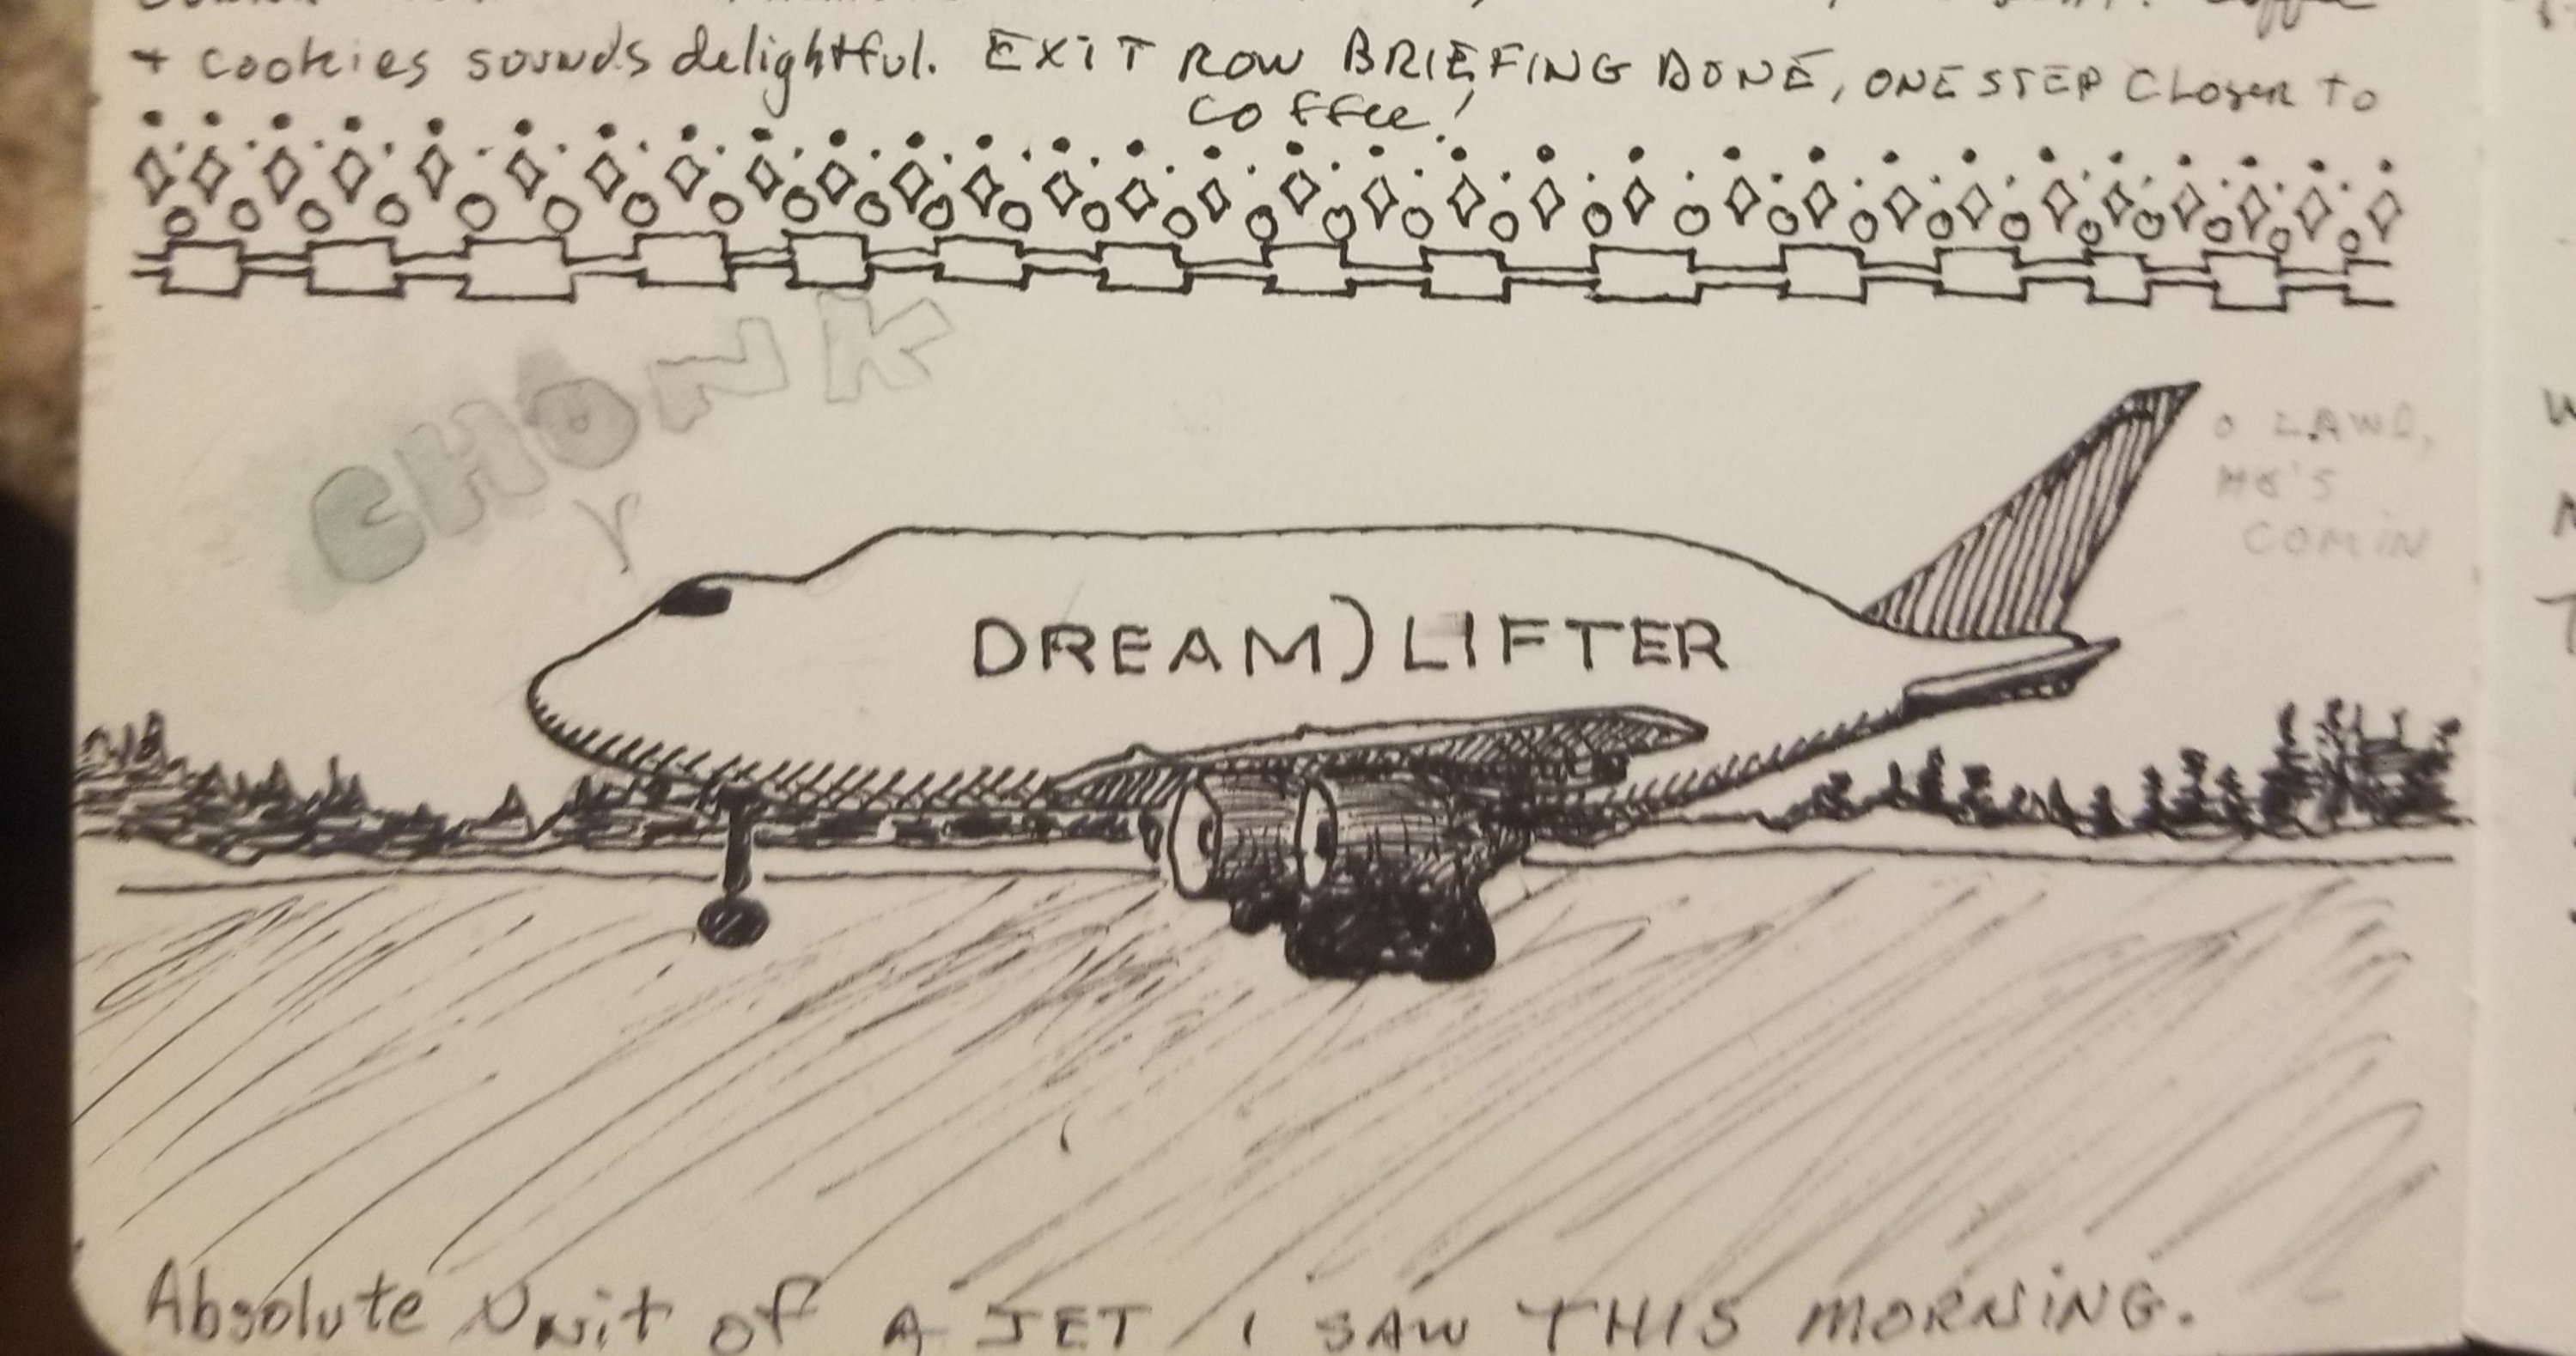 coffee
+ cookies sounds delightful. EXIT ROW BRIEFING DONE, ONE STEP Closer to
coffee!
CHONK
o LAWD,
HE'S
COMIN
DREAM)LIFTER
Absolute Unit of A JET I SAW THIS MORNING.